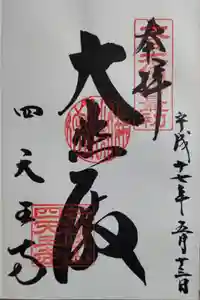 奉拝
平成十七年五月十三日
大悲殿
四天王寺